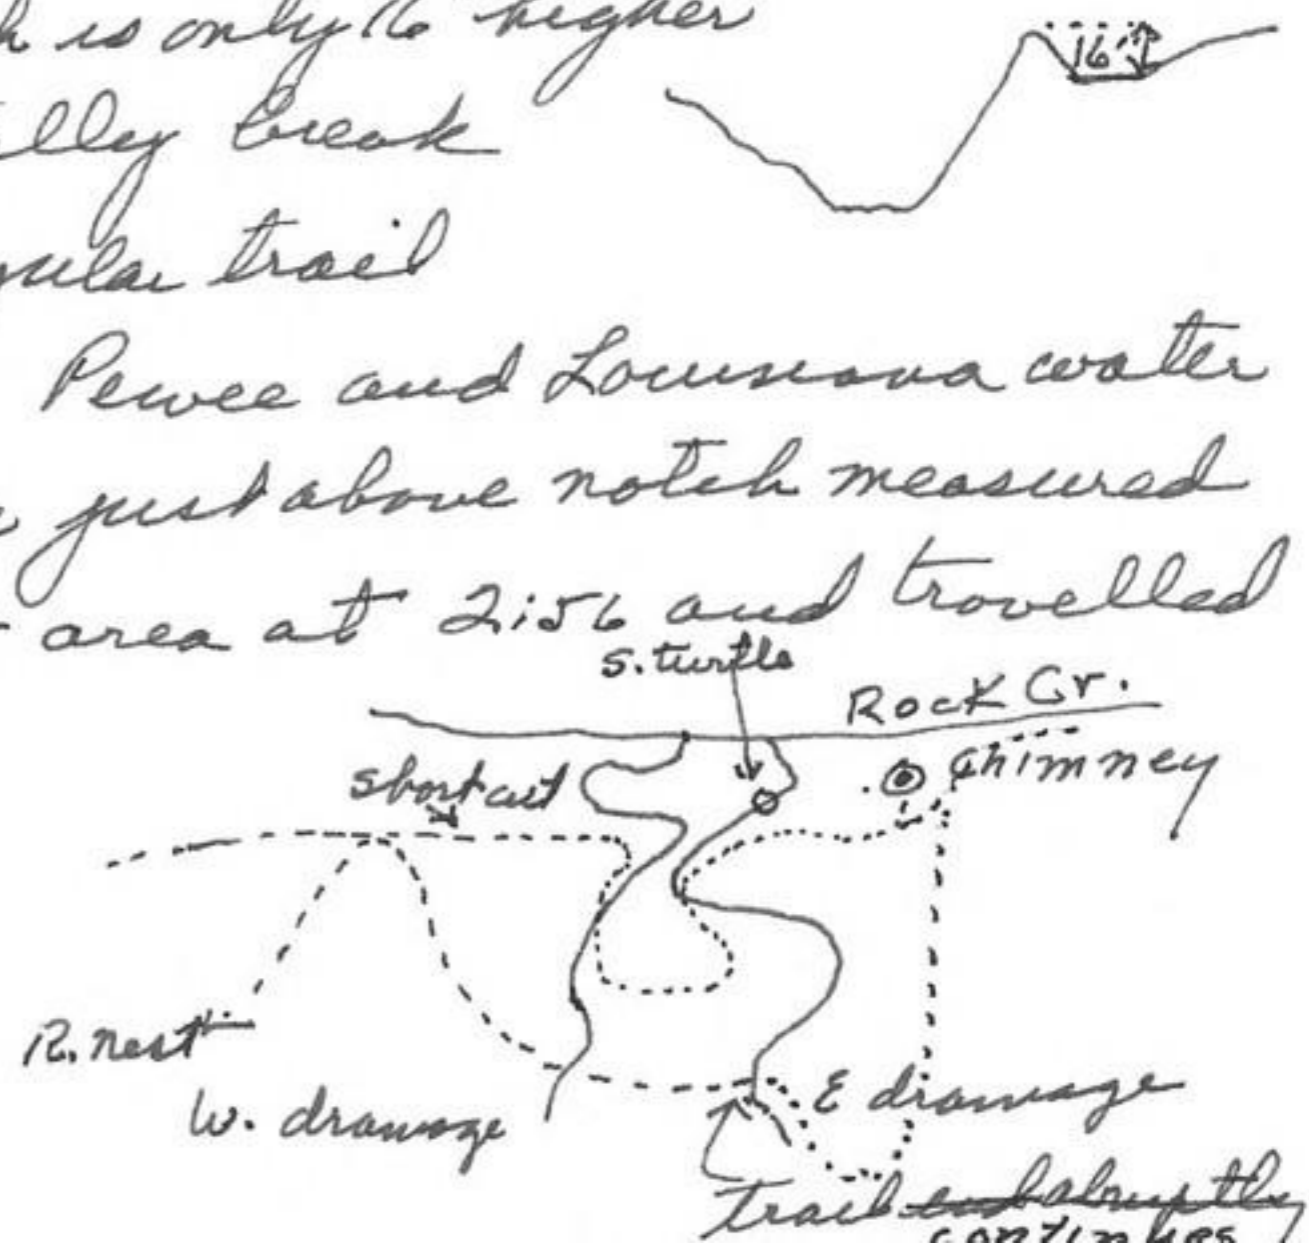 h is only 16 higher
16'
lly break
gular trail
Pewee and Louisiana water
just above notch measured
area at 2:56 and travelled
S. turtle
Rock Cr.
chimney
Short cut
R. nest
W. drainage
E drainage
trail end abruptly
continues